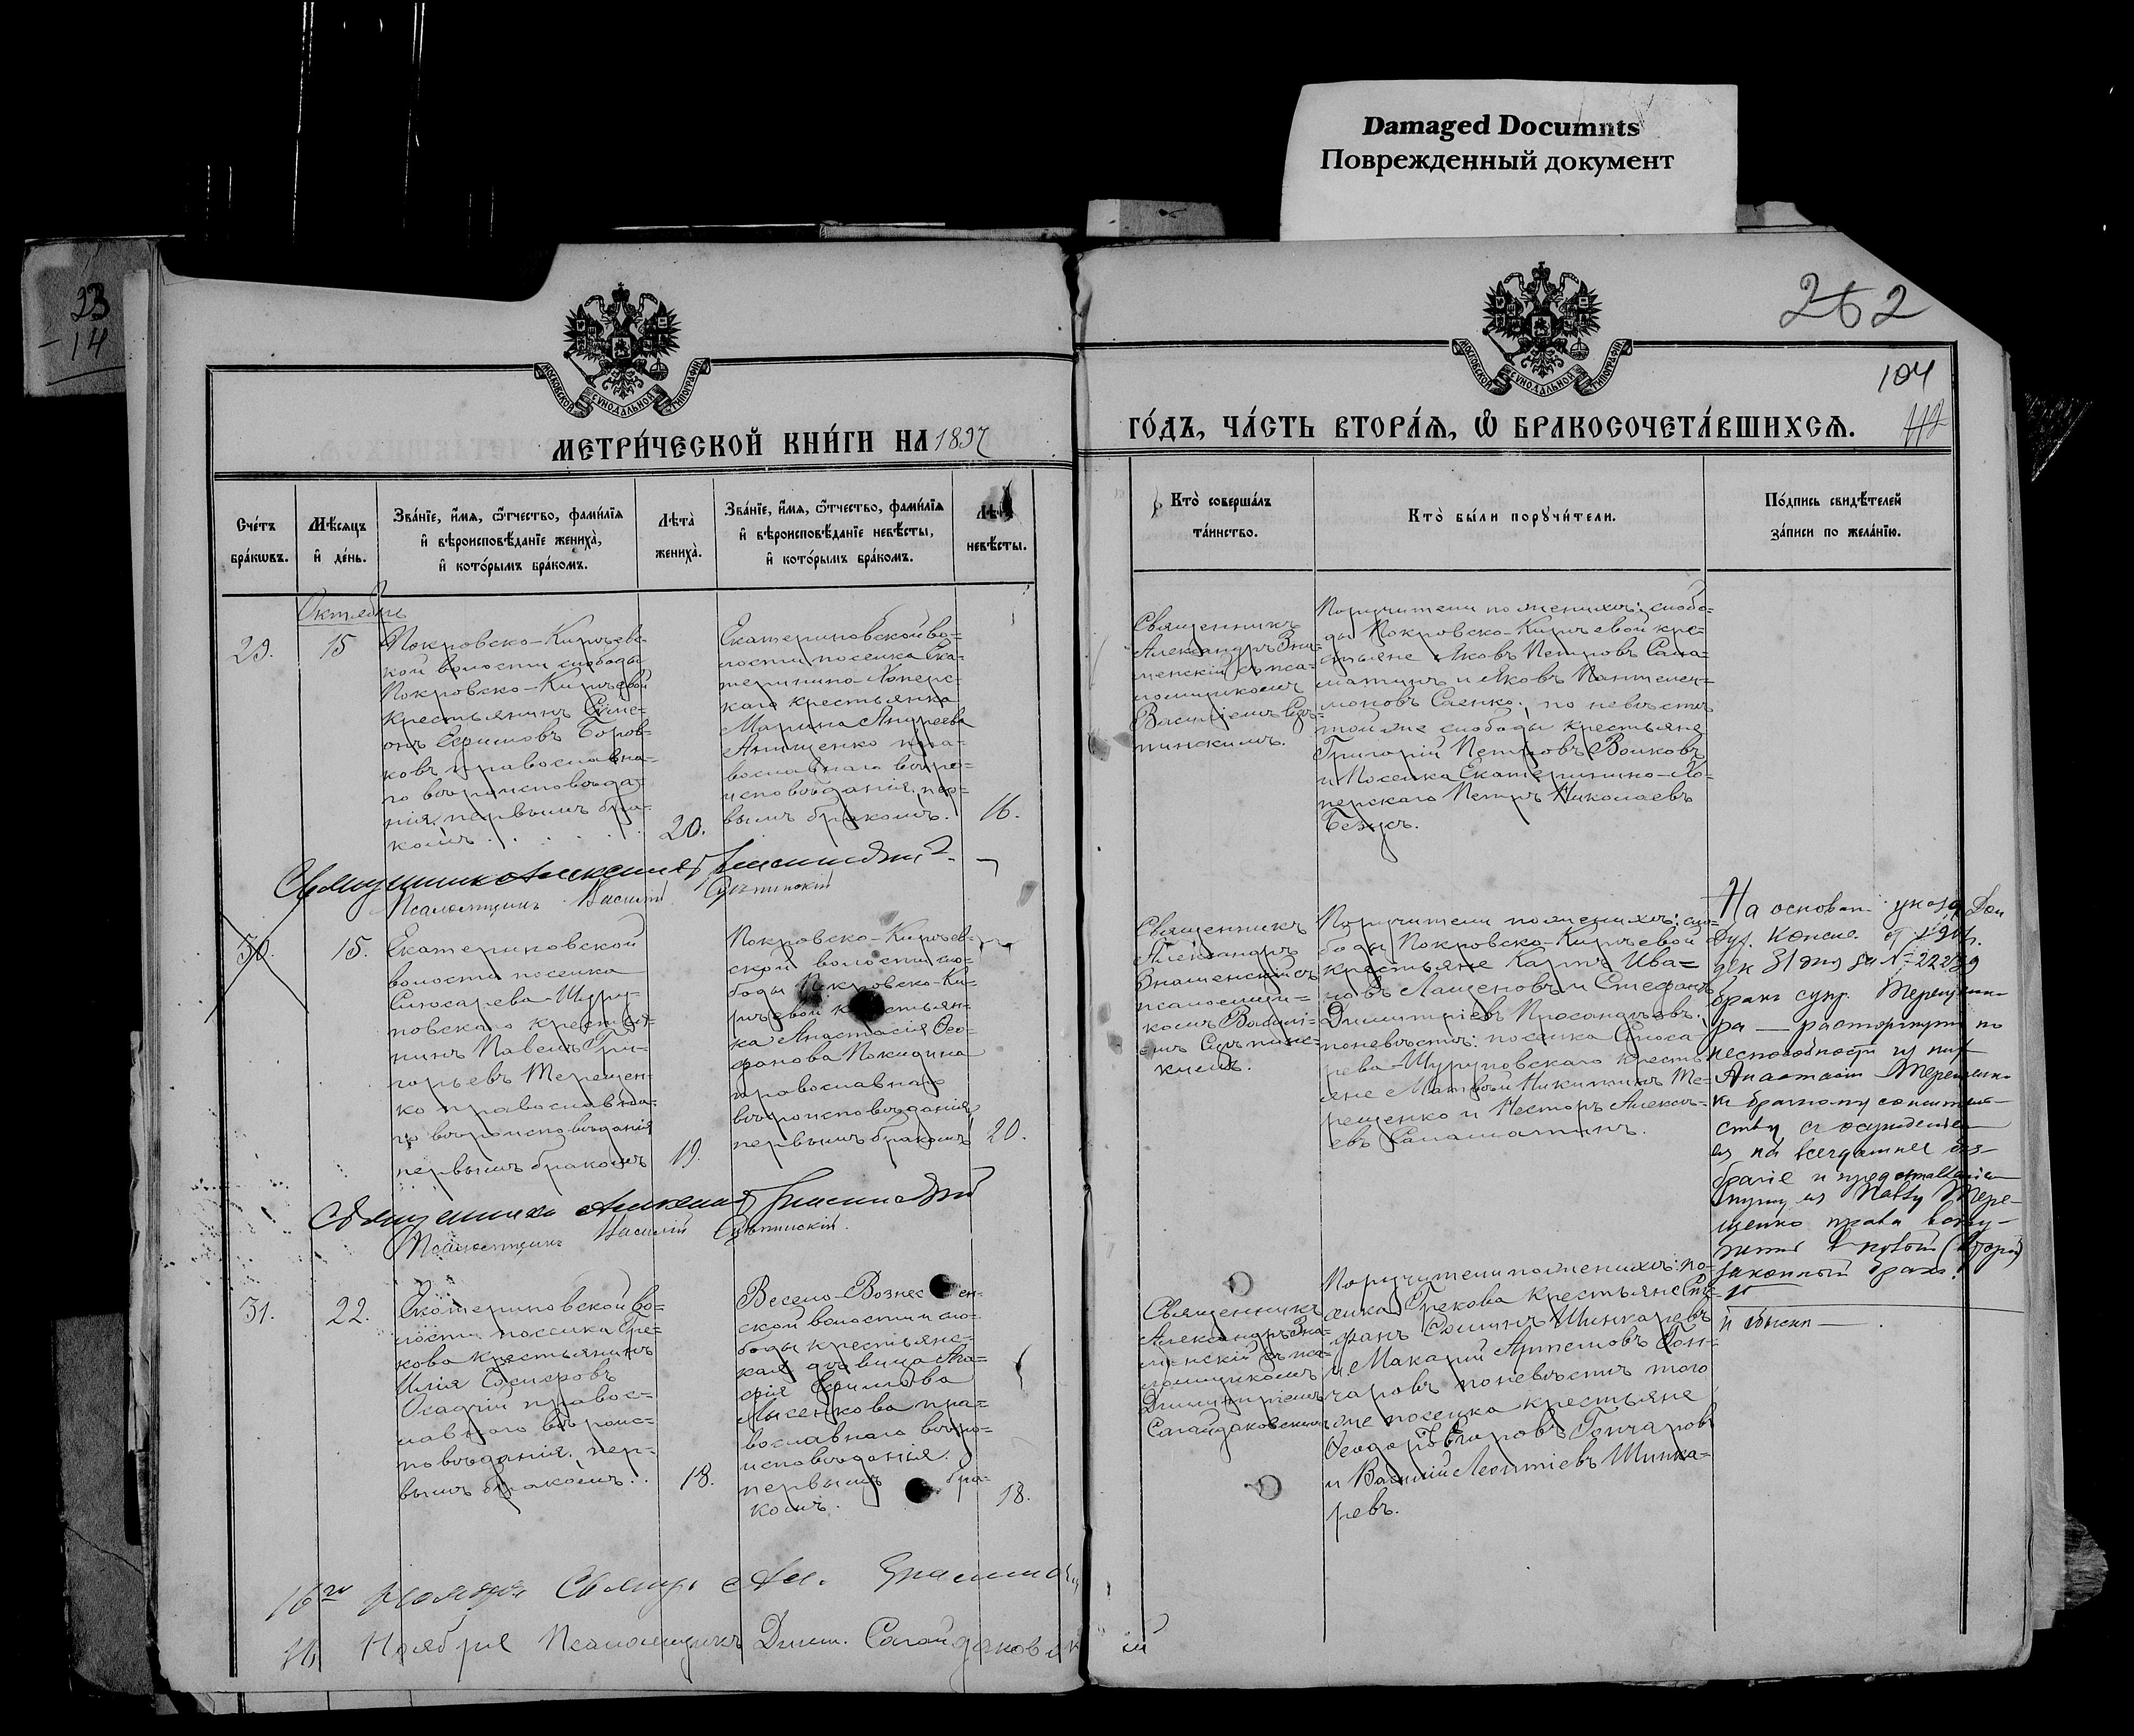 Damaged Documnts
Поврежденный документ
23
-14
262
104
МОСКОВСКОЙ СУНОДАЛЬНОЙ ТИПОГРАФІИ
МОСКОВСКОЙ СУНОДАЛЬНОЙ ТИПОГРАФІИ
МЕТРИ́ЧЕСКОЙ КНИ́ГИ НА 1897
ГО́ДЪ, ЧА́СТЬ ВТОРА́Ѧ, Ѽ БРАКОСОЧЕТА́ВШИХСѦ.
Сче́тъ бра́кωвъ.
Мѣ́сѧцъ и҆ де́нь.
Зва́нїе, и҆́мѧ, ѿ́тчество, фами́лїѧ и҆ вѣроисповѣ́данїе жениха̀, и҆ кото́рымъ бра́комъ.
Лѣта̀ жениха̀.
Зва́нїе, и҆́мѧ, ѿ́тчество, фами́лїѧ и҆ вѣроисповѣ́данїе невѣ́сты, и҆ кото́рымъ бра́комъ.
Лѣта̀ невѣ́сты.
Кто̀ соверша́лъ та́инство.
Кто̀ бы́ли порꙋчи́тели.
По́дпись свидѣ́телей за́писи по жела́нїю.
Октября
29.
15
Покровско-Кирѣевс-
кой волости слободы
Покровско-Кирѣевой
крестьянинъ Симе-
онъ Ефимовъ Боров-
ковъ православна-
го вѣроисповѣда-
нія, первымъ бра-
комъ.
20.
Екатериновской во-
лости поселка Ека-
терино-Хоперс-
каго крестьянка
Марина Андреева
Анищенко пра-
вославнаго вѣро-
исповѣданія, пер-
вымъ бракомъ.
16.
Священникъ
Александръ Зна-
менскій съ пса-
ломщикомъ
Василіемъ Сѣ-
тинскимъ.
Поручители по женихѣ: слобо-
ды Покровско-Кирѣевой кре-
стьяне Яковъ Петровъ Сала-
матинъ и Яковъ Пантелей-
моновъ Саенко. по невѣстѣ
той же слободы крестьяне
Григорій Петровъ Волковъ
и поселка Екатерино-Хо-
перскаго Петръ Николаевъ
Безукъ.
Священникъ Александръ Знаменскій
Псаломщикъ Василій
30.
15.
Екатериновской
волости поселка
Слюсарева-Шуру-
повскаго крестья-
нинъ Павелъ Гри-
горьевъ Терещен-
ко православна-
го вѣроисповѣданія
первымъ бракомъ
19.
Покровско-Кирѣев-
ской волости сло-
боды Покровско-Ки-
рѣевой крестьян-
ка Анастасія Ѳео-
фанова Покидина
православнаго
вѣроисповѣданія,
первымъ бракомъ
20.
Священникъ
Александръ
Знаменскій съ
псаломщи-
комъ Василі-
емъ
Поручители по женихѣ: сло-
боды Покровско-Кирѣевой
крестьяне Карпъ Ива-
новъ Лащеновъ и Стефанъ
Димитріевъ
по невѣстѣ: поселка Слюса
рева-Шуруповскаго кресть
яне Матвѣй Никитинъ Те-
рещенко и Несторъ Алексѣ-
евъ Саламатинъ.
На основан. указа Дон
Дух. Консис. от
дек 31 дня за №
бракъ супр. Терещенко
расторгнутъ по
неспособности
Анастасіи Терещенко
к брачному сожитель-
ству съ осужденіем
ея на всегдашнее без-
брачіе и предоставленіем
мужу ея Павлу Тере-
щенко права всту-
пить в новый (второй)
законный бракъ.
Священникъ Александръ Знаменскій
Псаломщикъ Василій
31.
22.
Екатериновской во-
лости поселка Гре-
кова крестьянинъ
Илія
Осадчій правос-
лавнаго вѣроис-
повѣданія, пер-
вымъ бракомъ.
18.
Весело-Вознесен-
ской волости сло-
боды крестьянс-
кая дѣвица Ага-
фія Ефимова
Лысенкова пра-
вославнаго вѣро-
исповѣданія.
первымъ бра-
комъ.
18.
Священникъ
Александръ Зна-
менскій съ пса-
ломщикомъ
Димитріемъ
Сагайдаковскимъ
Поручители по женихѣ: по-
селка Грекова крестьяне Сте-
фанъ Шинкаревъ
и Макарій Артемовъ Гон-
чаровъ по невѣстѣ того
же поселка крестьяне
Ѳеодоръ Егоровъ Гончаровъ
и Василій Леонтіевъ Шинка-
ревъ.
16го Ноября Священ. Ал. Знаменскій
16 Ноября Псаломщикъ Дим. Сагайдаковскій